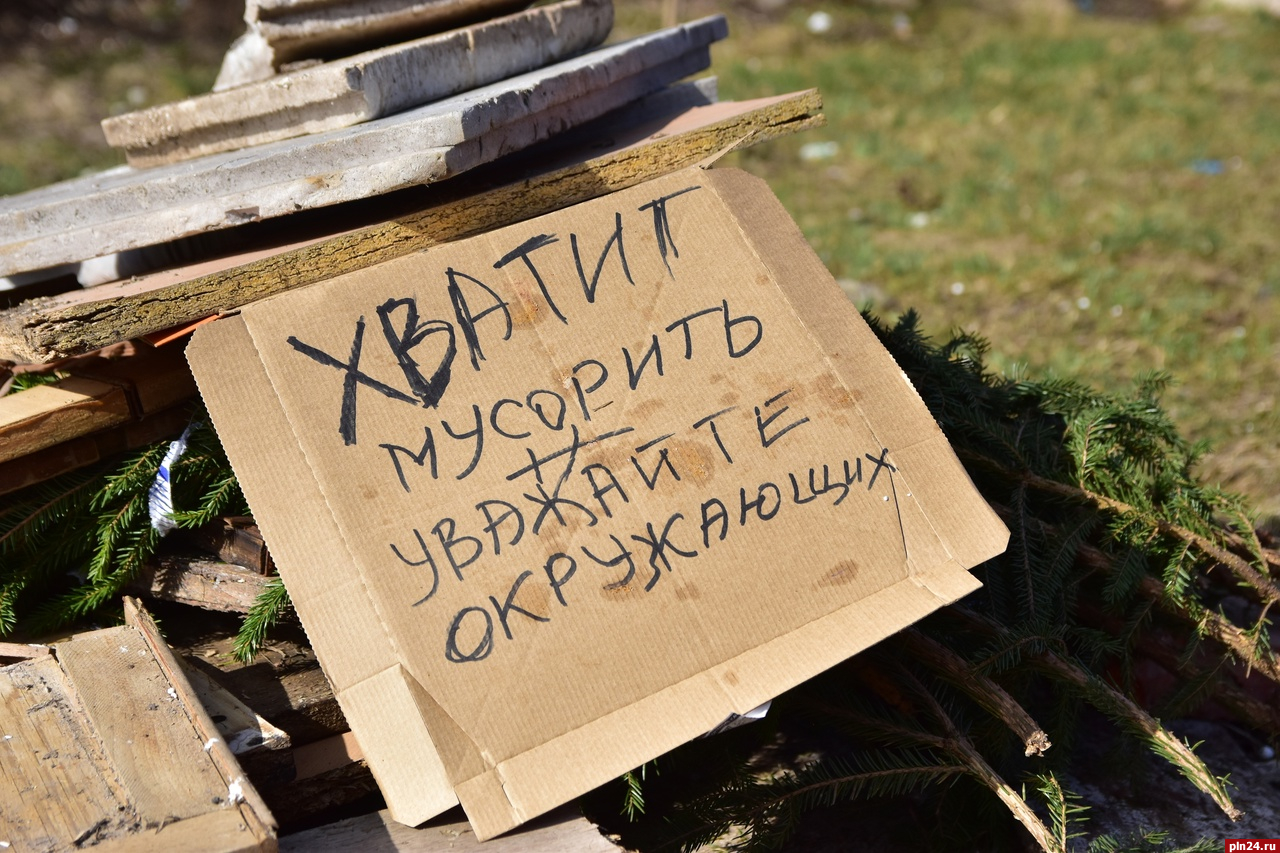 ХВАТИТ
МУСОРИТЬ
УВАЖАЙТЕ
ОКРУЖАЮЩИХ
pln24.ru